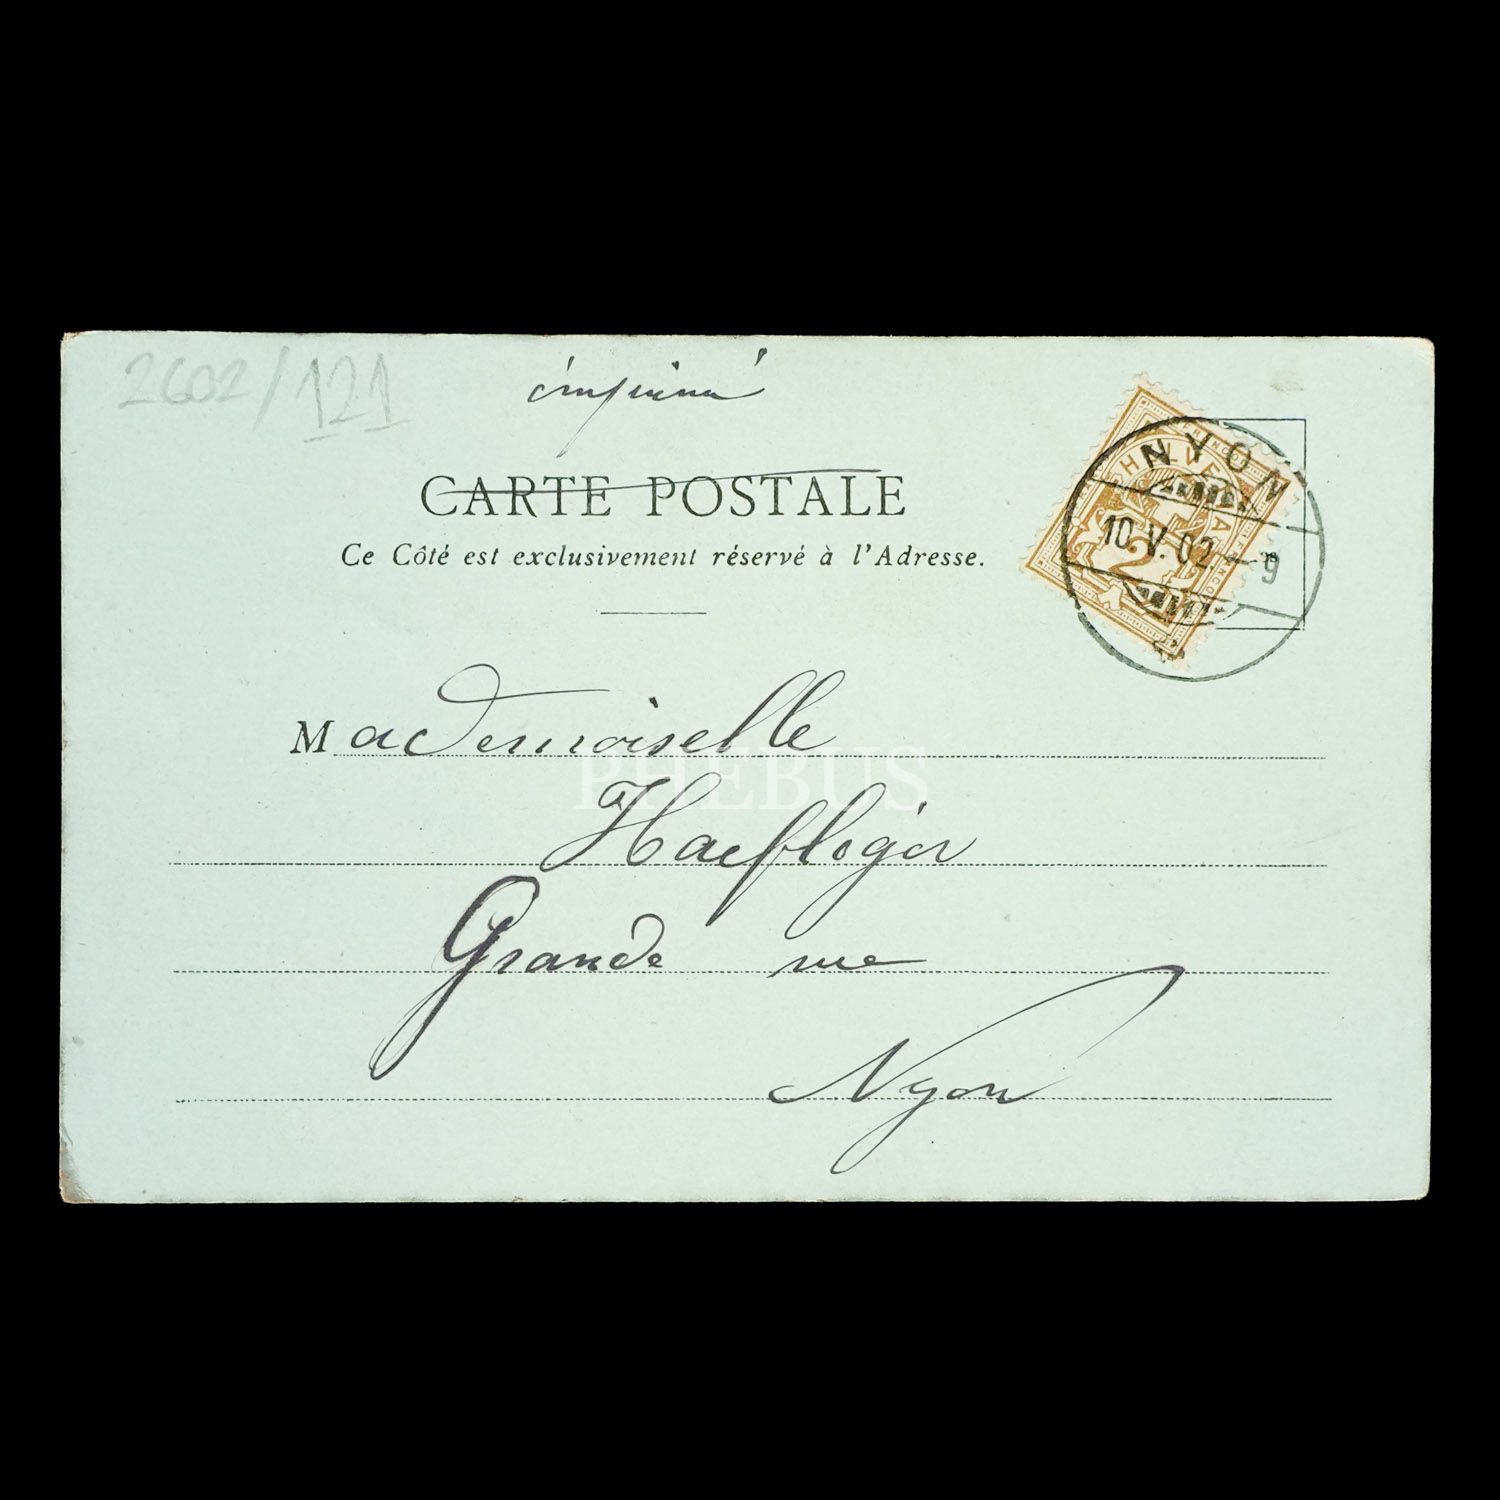 2602/121
imprimé
CARTE POSTALE
Ce Côté est exclusivement réservé à l'Adresse.
HELVETIA
2
NYON
10.V.02.-9
Mademoiselle
PHEBUS
Haefliger
Grande rue
Nyon